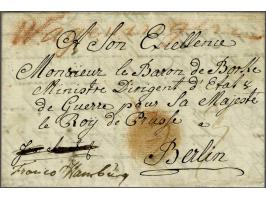 A Son Excellence
Monsieur le Baron de Borke
Ministre Dirigent d'Etat &
de Guerre pour Sa Majesté
le Roy de Prusse a
Berlin
Franco Hamburg